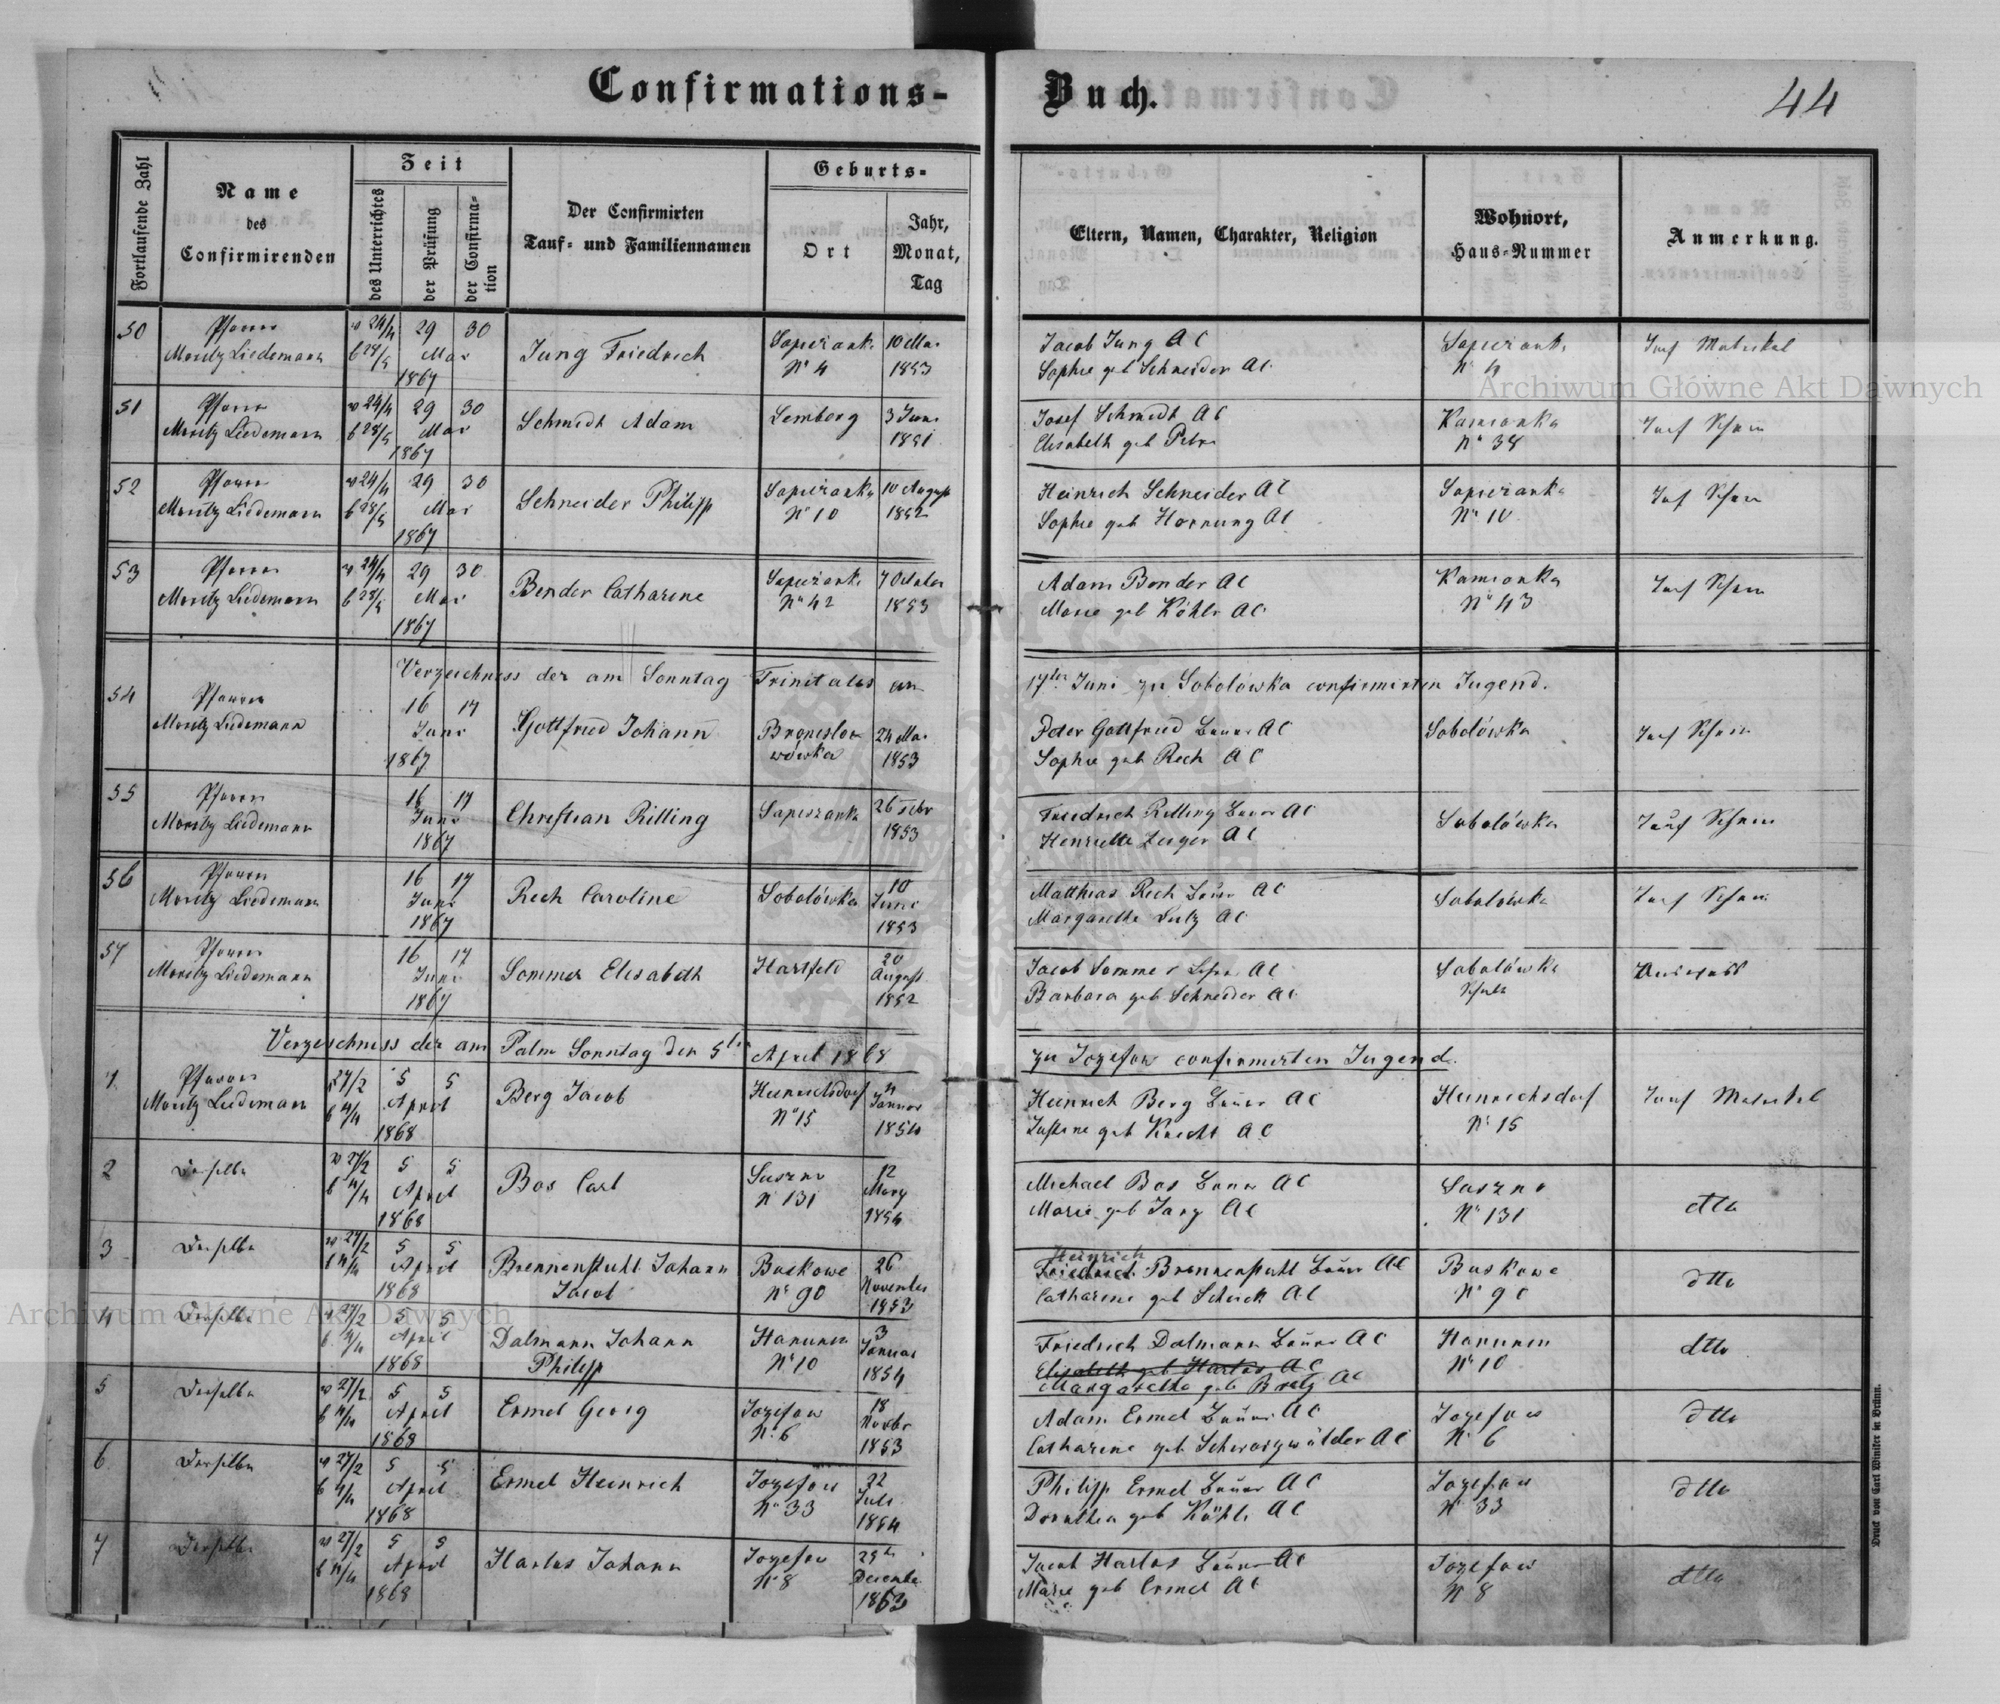 Confirmations-Buch.
44
Fortlaufende Zahl
Name des Confirmirenden
Zeit
des Unterrichtes
der Prüfung
der Confirmation
Der Confirmirten Tauf- und Familiennamen
Geburts-
Ort
Jahr, Monat, Tag
Eltern, Namen, Charakter, Religion
Wohnort, Haus-Nummer
Anmerkung.
50 Pfarrer Moritz Liedemann v 24/4 29 30 Mai 1867 Jung Friedrich Nº 4 10 Mai 1853 Jacob Jung AC Sophie geb Schneider AC Nº 4
51 Pfarrer Moritz Liedemann v 24/4 b 28/5 29 30 Mai 1867 Schmidt Adam Lemberg 3 Juni 1851 Josef Schmidt AC Elisabeth geb Kamionka Nº 38
52 Pfarrer Moritz Liedemann v 24/4 b 28/5 29 30 Mai 1867 Schneider Philipp Sapiezanka Nº 10 10 August 1852 Heinrich Schneider AC Sophie geb Hornung AC Sapiezanka Nº 10
53 Pfarrer Moritz Liedemann v 24/4 b 28/5 29 30 Mai 1867 Bender Catharine Nº 42 7 October 1853 Adam Bender AC Marie geb Köhler AC Kamionka Nº 43
Verzeichniss der am Sonntag Trinitatis am 17ten Juni zu Sobolówka confirmirten Jugend.
54 Pfarrer Moritz Liedemann 16 17 Juni 1867 Gottfried Johann Bronislowówka 24 Mai 1853 Peter Gottfried Bauer AC Sophie geb Rech AC Sobolówka
55 Pfarrer Moritz Liedemann 16 17 Juni 1867 Christian Rilling Sapiezanka 26 Febr 1853 Friedrich Rilling Bauer AC Henriette AC Sobolówka
56 Pfarrer Moritz Liedemann 16 17 Juni 1867 Rech Caroline Sobolówka 10 Juni 1853 Matthias Rech Bauer AC Margarethe AC Sobolówka
57 Pfarrer Moritz Liedemann 16 17 Juni 1867 Sommer Elisabeth Hartfeld 20 August 1852 Jacob Sommer AC Barbara geb Schneider AC Sobolówka
Verzeichniss der am Palm Sonntag den 5ten April 1868 zu Jozefow confirmirten Jugend.
1 Pfarrer Moritz Liedemann v 27/2 b 4/4 5 5 April 1868 Berg Jacob Heinrichsdorf Nº 15 4 Januar 1854 Heinrich Berg Bauer AC Justine geb Knecht AC Heinrichsdorf Nº 15
2 Derselbe v 27/2 b 4/4 5 5 April 1868 Bos Carl Suszno Nº 131 12 März 1854 Michael Bos Bauer AC Marie geb Jung AC Suszno Nº 131 dtto
3 Derselbe v 27/2 b 4/4 5 5 April 1868 Brennenstuhl Johann Jacob Buskowe Nº 90 26 November 1853 Heinrich Friedrich Brennenstuhl Bauer AC Catharine geb Schick AC Buskowe Nº 90 dtto
4 Derselbe v 27/2 b 4/4 5 5 April 1868 Dalmann Johann Philipp Hanunin Nº 10 3 Januar 1854 Friedrich Dalmann Bauer AC Elisabeth geb Harlos AC Margarethe geb Bretz AC Hanunin Nº 10 dtto
5 Derselbe v 27/2 b 4/4 5 5 April 1868 Ermel Georg Jozefow Nº 6 18 Novbr 1853 Adam Ermel Bauer AC Catharine geb Schwarzwälder AC Jozefow Nº 6 dtto
6 Derselbe v 27/2 b 4/4 5 5 April 1868 Ermel Heinrich Jozefow Nº 33 22 Juli 1854 Philipp Ermel Bauer AC Dorothea geb Köhle AC Jozefow Nº 33 dtto
7 Derselbe v 27/2 b 4/4 5 5 April 1868 Harlos Johann Jozefow Nº 8 Decembe 1853 Jacob Harlos Bauer AC Marie geb Ermel AC Jozefow Nº 8 dtto
Druck von Carl Winiker in Brünn.
Archiwum Główne Akt Dawnych
Archiwum Główne Akt Dawnych